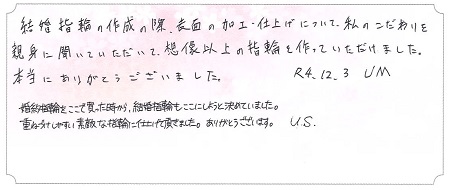 結婚指輪の作成の際、表面の加工・仕上げについて、私のこだわりを
親身に聞いていただいて、想像以上の指輪を作っていただけました。
本当にありがとうございました。 R4.12.3 UM
婚約指輪をここで買った時から、結婚指輪もここにしようと決めていました。
重ねづけしやすい素敵な指輪に仕上げて頂きました。ありがとうございます。 U.S.